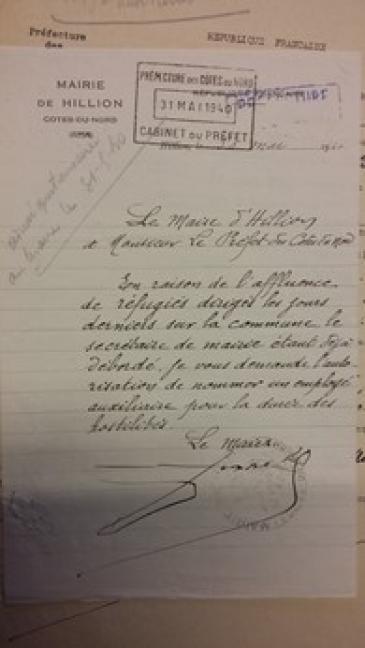 Préfecture
des
REPUBLIQUE FRANCAISE
MAIRIE
DE HILLION
COTES-DU-NORD
PRÉFECTURE DES CÔTES DU NORD
31 MAI 1940
CABINET DU PRÉFET
Hillion, le mai
au maire le 31-5-40
Le Maire d'Hillion
à Monsieur Le Préfet des Côtes du Nord
En raison de l'affluence
de réfugiés dirigés les jours
derniers sur la commune le
secrétaire de mairie étant déjà
débordé. Je vous demande l'auto-
risation de nommer un employé
auxiliaire pour la durée des
hostilités.
Le maire